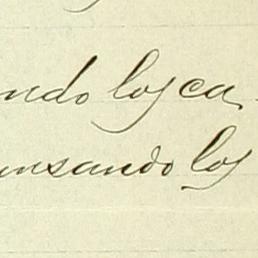 ndo los ca
ensando los